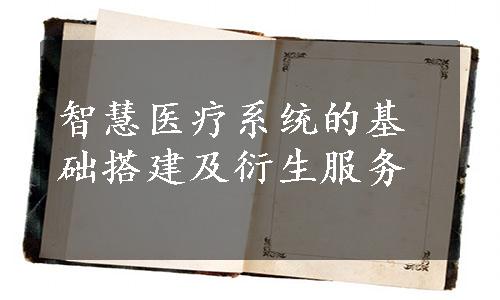 智慧医疗系统的基
础搭建及衍生服务